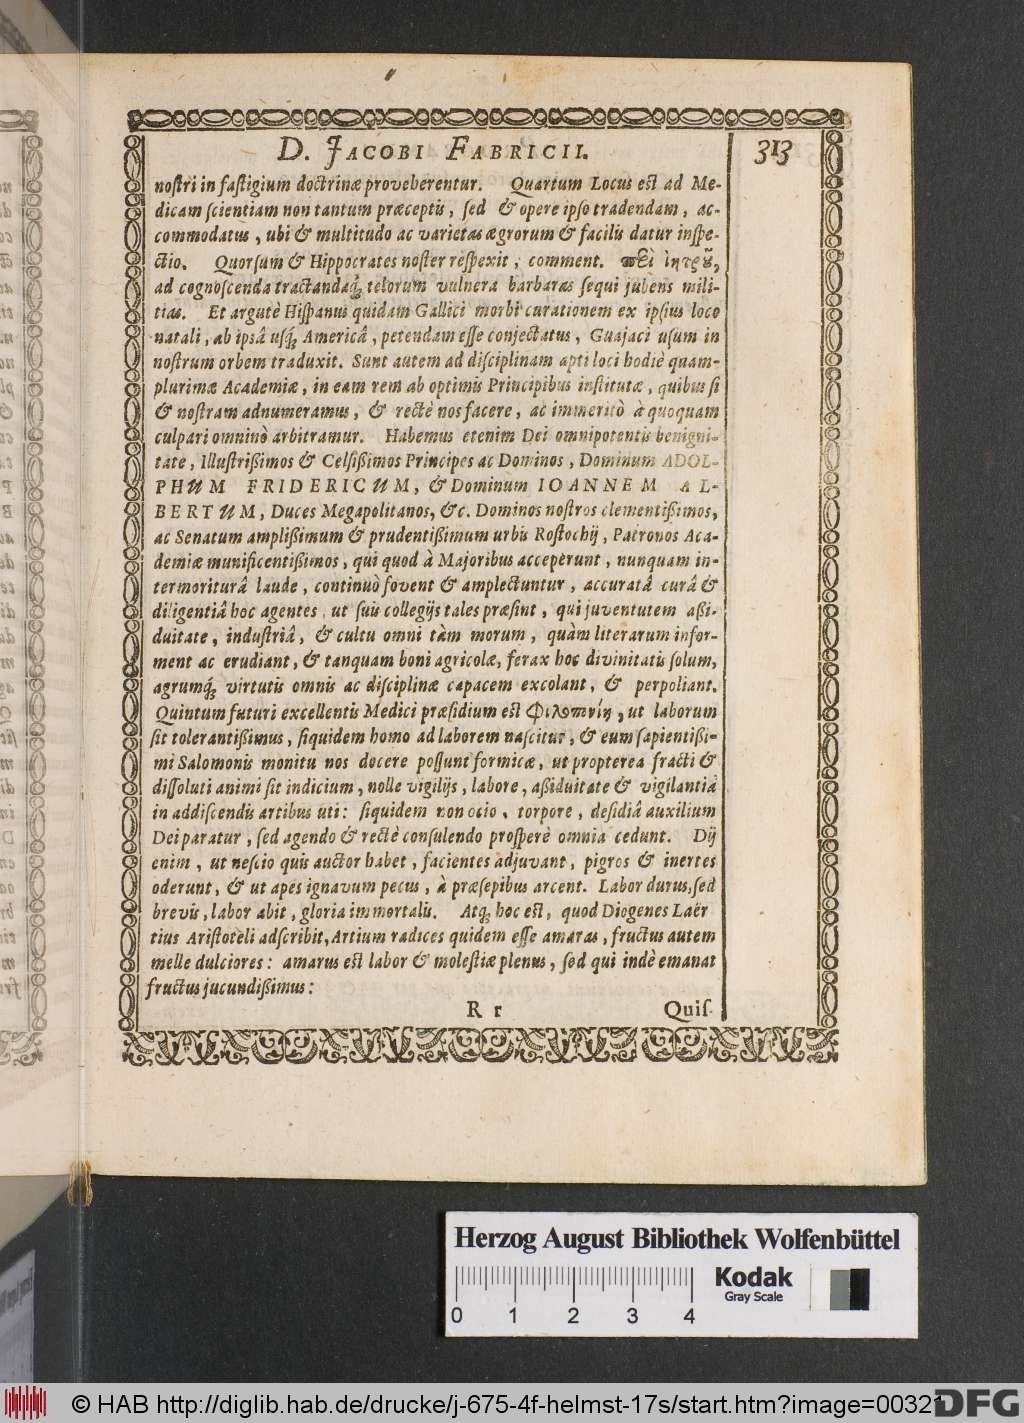 D. JACOBI FABRICII.
313
nostri in fastigium doctrinæ proveherentur. Quartum Locus est ad Me-
dicam scientiam non tantum præceptis, sed & opere ipso tradendam, ac-
commodatus, ubi & multitudo ac varietas ægrorum & facilis datur inspe-
ctio. Quorsum & Hippocrates noster respexit, comment. πεὶ ἰητρȣ͂,
ad cognoscenda tractandaq́; telorum vulnera barbaras sequi jubens mili-
tias. Et argutè Hispanus quidam Gallici morbi curationem ex ipsius loco
natali, ab ipsâ usq́; Americâ, petendam esse conjectatus, Guajaci usum in
nostrum orbem traduxit. Sunt autem ad disciplinam apti loci hodiè quam-
plurimæ Academiæ, in eam rem ab optimis Principibus institutæ, quibus si
& nostram adnumeramus, & rectè nos facere, ac immeritò à quoquam
culpari omninò arbitramur. Habemus etenim Dei omnipotentis benigni-
tate, Illustrißimos & Celsißimos Principes ac Dominos, Dominum ADOL-
PHUM FRIDERICUM, & Dominum IOANNEM AL-
BERTUM, Duces Megapolitanos, &c. Dominos nostros clementißimos,
ac Senatum amplißimum & prudentißimum urbis Rostochij, Patronos Aca-
demiæ munificentißimos, qui quod à Majoribus acceperunt, nunquam in-
termoriturâ laude, continuò fovent & amplectuntur, accuratâ curâ &
diligentiâ hoc agentes, ut suis collegijs tales præsint, qui juventutem aßi-
duitate, industriâ, & cultu omni tàm morum, quàm literarum infor-
ment ac erudiant, & tanquam boni agricolæ, ferax hoc divinitatis solum,
agrumq́; virtutis omnis ac disciplinæ capacem excolant, & perpoliant.
Quintum futuri excellentis Medici præsidium est Φιλοπονίη, ut laborum
sit tolerantißimus, siquidem homo ad laborem nascitur, & eum sapientißi-
mi Salomonis monitu nos docere possunt formicæ, ut propterea fracti &
dissoluti animi sit indicium, nolle vigilijs, labore, aßiduitate & vigilantiâ
in addiscendis artibus uti: siquidem non ocio, torpore, desidiâ auxilium
Dei paratur, sed agendo & rectè consulendo prosperè omnia cedunt. Dij
enim, ut nescio quis auctor habet, facientes adjuvant, pigros & inertes
oderunt, & ut apes ignavum pecus, à præsepibus arcent. Labor durus, sed
brevis, labor abit, gloria immortalis. Atq́; hoc est, quod Diogenes Laër
tius Aristoteli adscribit, Artium radices quidem esse amaras, fructus autem
melle dulciores: amarus est labor & molestiæ plenus, sed qui indè emanat
fructus jucundißimus:
R r
Quis-
Herzog August Bibliothek Wolfenbüttel
Kodak
Gray Scale
0 1 2 3 4
© HAB http://diglib.hab.de/drucke/j-675-4f-helmst-17s/start.htm?image=00321
DFG